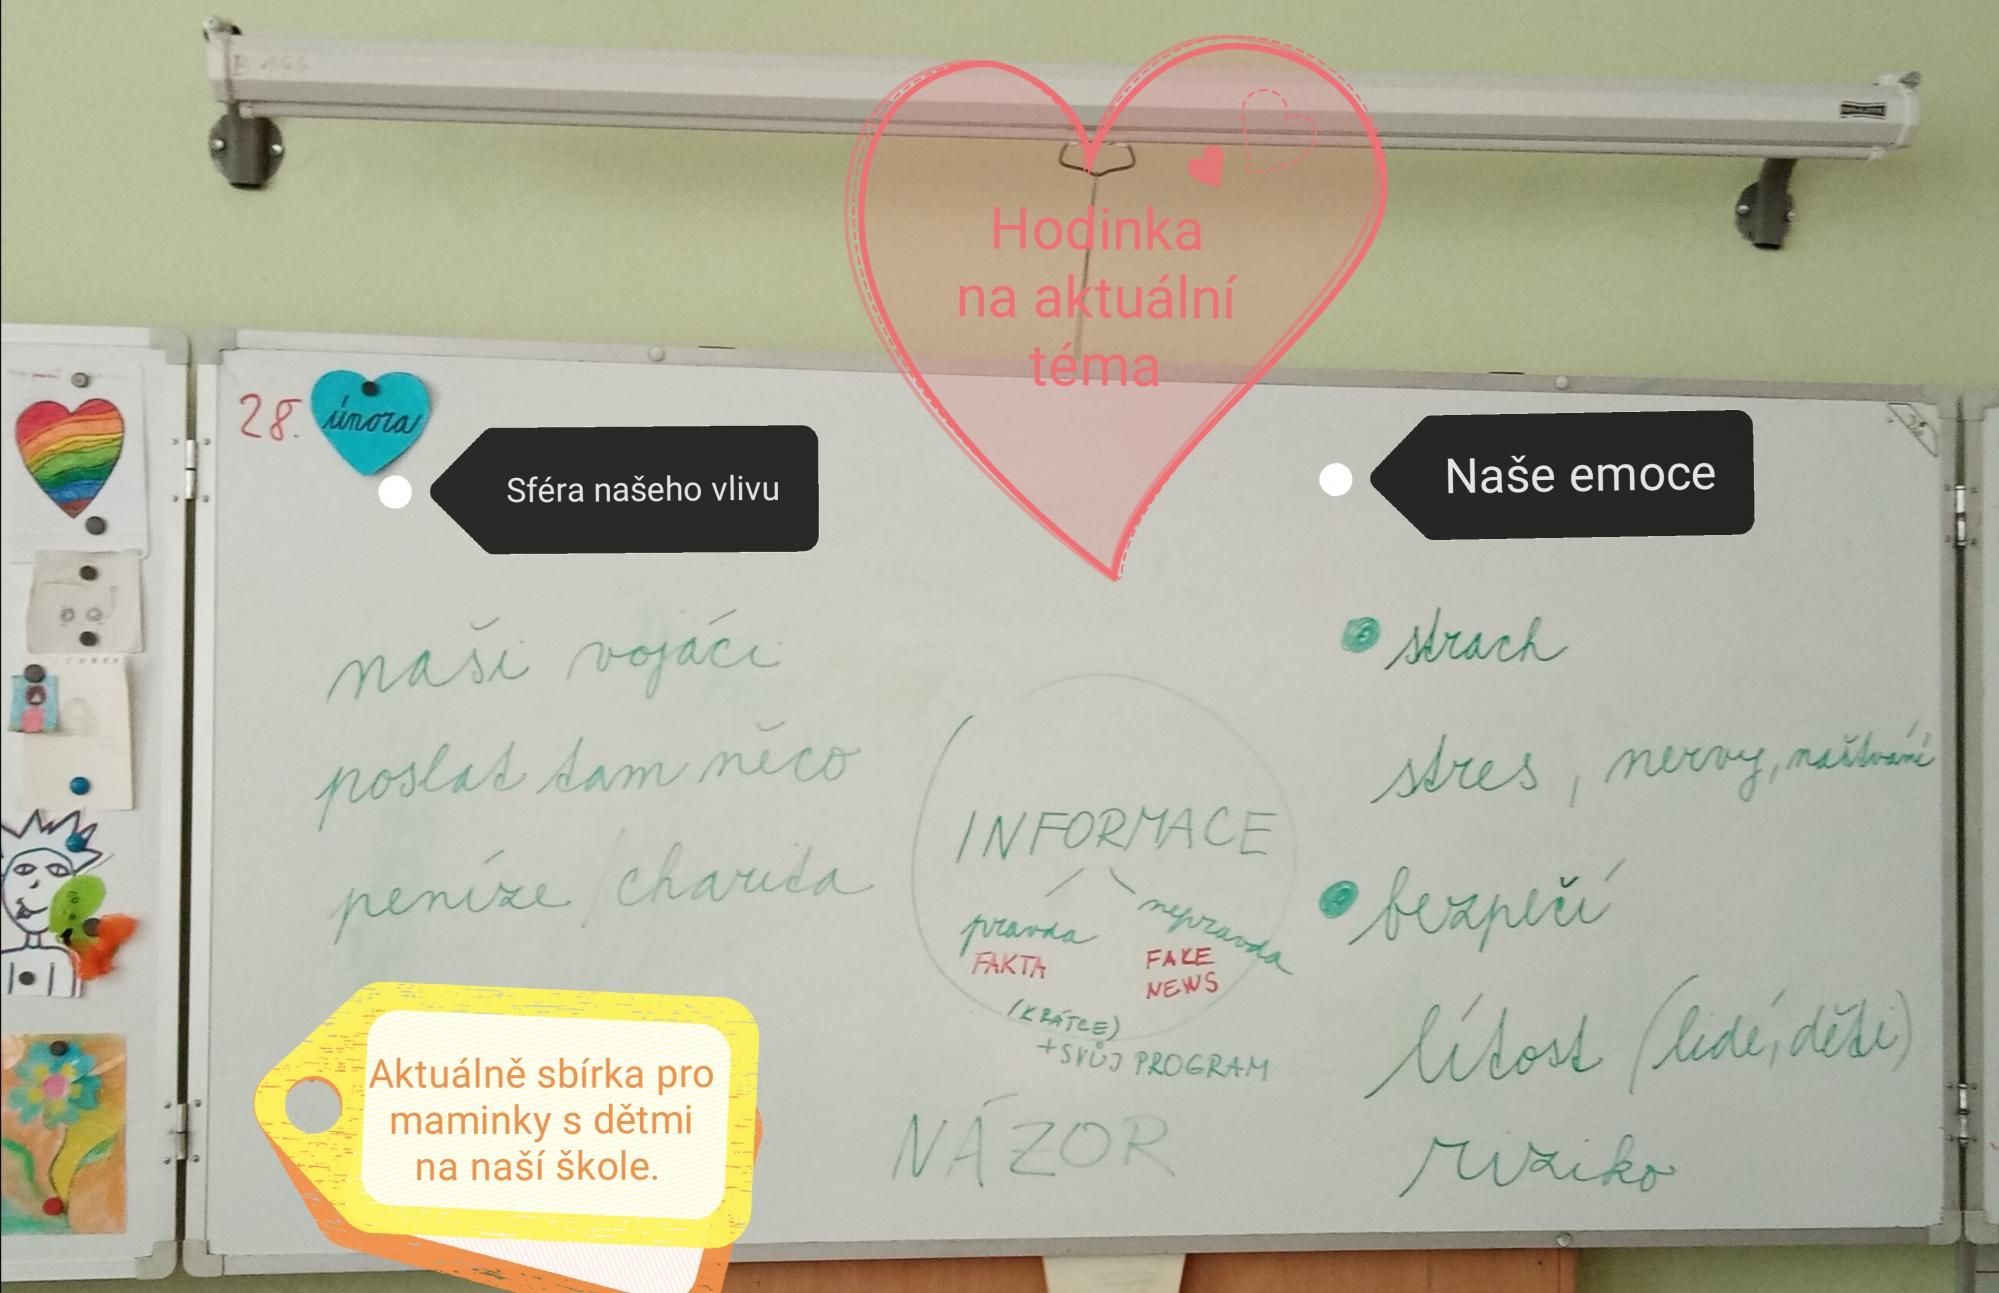 Hodinka
na aktuální
téma
28. února
Sféra našeho vlivu
naši vojáci
poslat tam něco
peníze / charita
Aktuálně sbírka pro
maminky s dětmi
na naší škole.
INFORMACE
pravda
FAKTA
nepravda
FAKE
NEWS
(KRÁTCE)
+ SVŮJ PROGRAM
NÁZOR
Naše emoce
strach
stres, nervy, naštvání
bezpečí
lítost (lidé, děti)
riziko